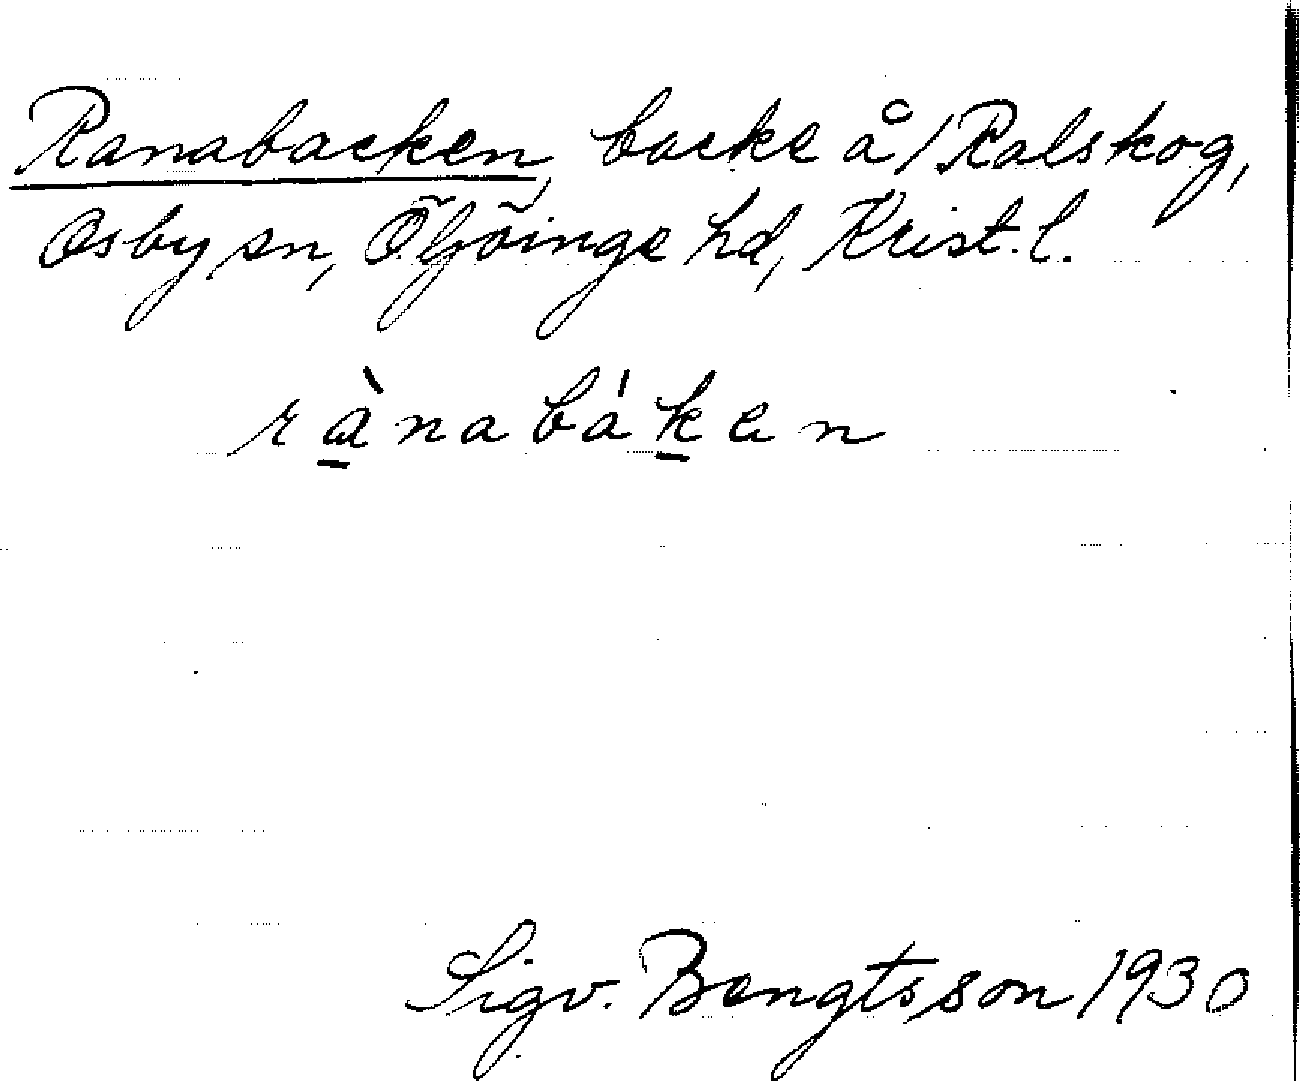 Ranabacken, backe å /Ralskog,
Osby sn, Ö. Göinge hd, Krist. l.
rànabáken
Sigv. Bengtsson 1930